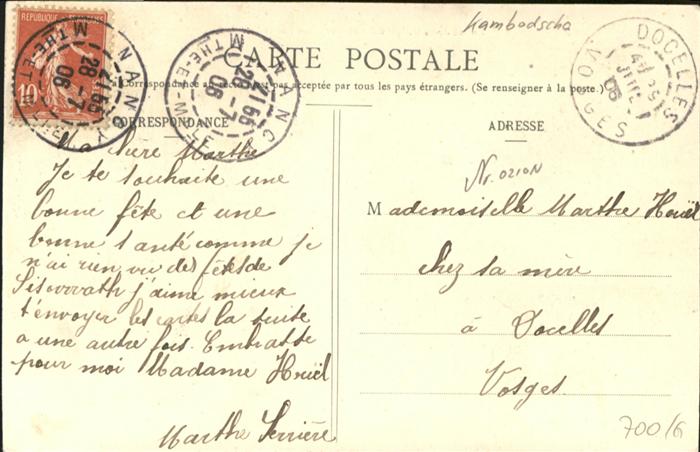 Kambodscha
REPUBLIQUE
10
NANCY
28-7
06
NANCY
28-7
06
DOCELLES
VOSGES
06
CARTE POSTALE
Correspondance au recto n'est pas acceptée par tous les pays étrangers. (Se renseigner à la poste.)
CORRESPONDANCE
Ma chère Marthe
Je te souhaite une
bonne fête et une
bonne santé comme je
n'ai rien vu des fêtes de
Sisowath j'aime mieux
t'envoyer les cartes la suite
a une autre fois. Embrasse
pour moi Madame Houël
Marthe Serrière
ADRESSE
Nr. 0210N
Mademoiselle Marthe Houël
chez sa mère
à Docelles
Vosges
700/6